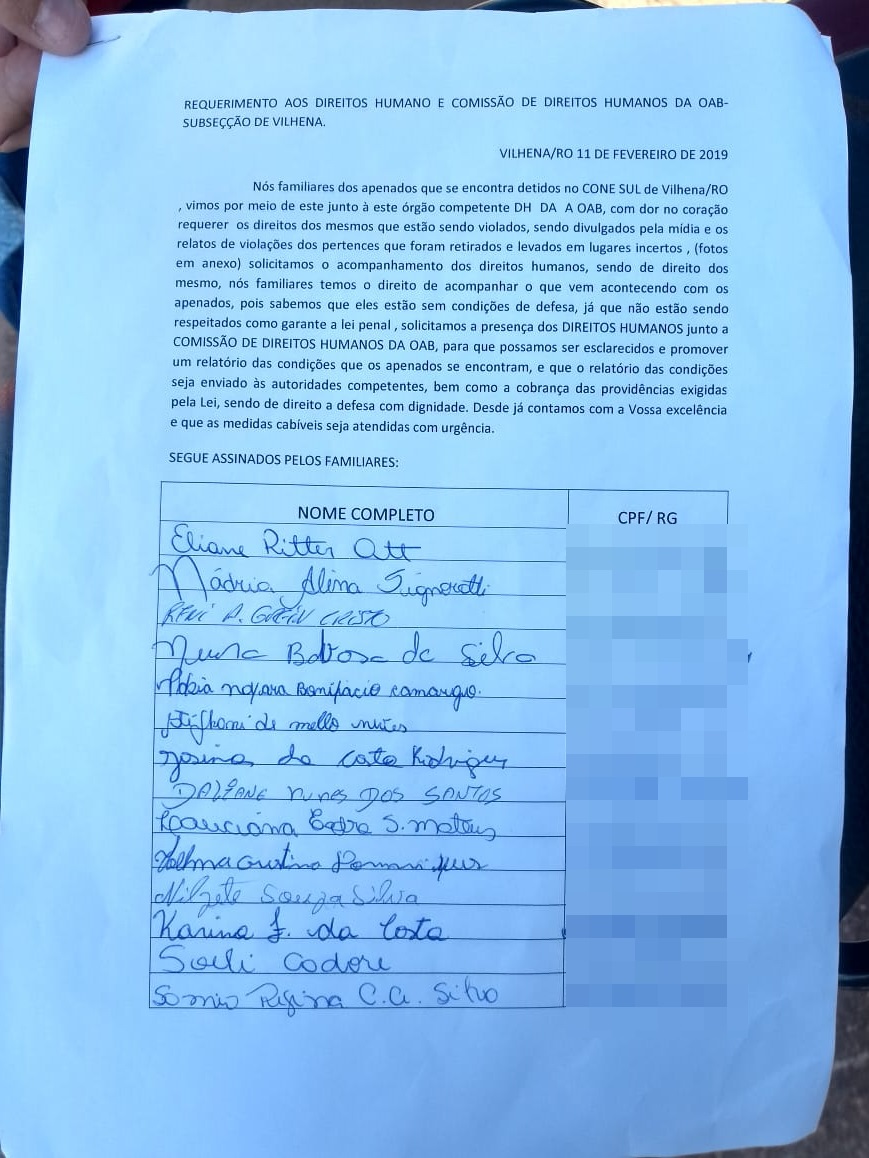 REQUERIMENTO AOS DIREITOS HUMANO E COMISSÃO DE DIREITOS HUMANOS DA OAB-
SUBSECÇÃO DE VILHENA.
VILHENA/RO 11 DE FEVEREIRO DE 2019
Nós familiares dos apenados que se encontra detidos no CONE SUL de Vilhena/RO
, vimos por meio de este junto à este órgão competente DH DA A OAB, com dor no coração
requerer os direitos dos mesmos que estão sendo violados, sendo divulgados pela mídia e os
relatos de violações dos pertences que foram retirados e levados em lugares incertos , (fotos
em anexo) solicitamos o acompanhamento dos direitos humanos, sendo de direito dos
mesmo, nós familiares temos o direito de acompanhar o que vem acontecendo com os
apenados, pois sabemos que eles estão sem condições de defesa, já que não estão sendo
respeitados como garante a lei penal , solicitamos a presença dos DIREITOS HUMANOS junto a
COMISSÃO DE DIREITOS HUMANOS DA OAB, para que possamos ser esclarecidos e promover
um relatório das condições que os apenados se encontram, e que o relatório das condições
seja enviado às autoridades competentes, bem como a cobrança das providências exigidas
pela Lei, sendo de direito a defesa com dignidade. Desde já contamos com a Vossa excelência
e que as medidas cabíveis seja atendidas com urgência.
SEGUE ASSINADOS PELOS FAMILIARES:
NOME COMPLETO CPF/ RG
Eliane Ritter Ott
Mádria Alina Signoretti
RENI A. CRISTO
Neusa Barbosa da Silva
Bonifácio camargo.
de mello nunes
Josina da Costa Rodrigues
DAIANE nunes DOS SANTOS
S. mateus
cristina
Nilzete Souza Silva
Karina F. da Costa
Soeli Codore
Sonia Regina C.A. Silva